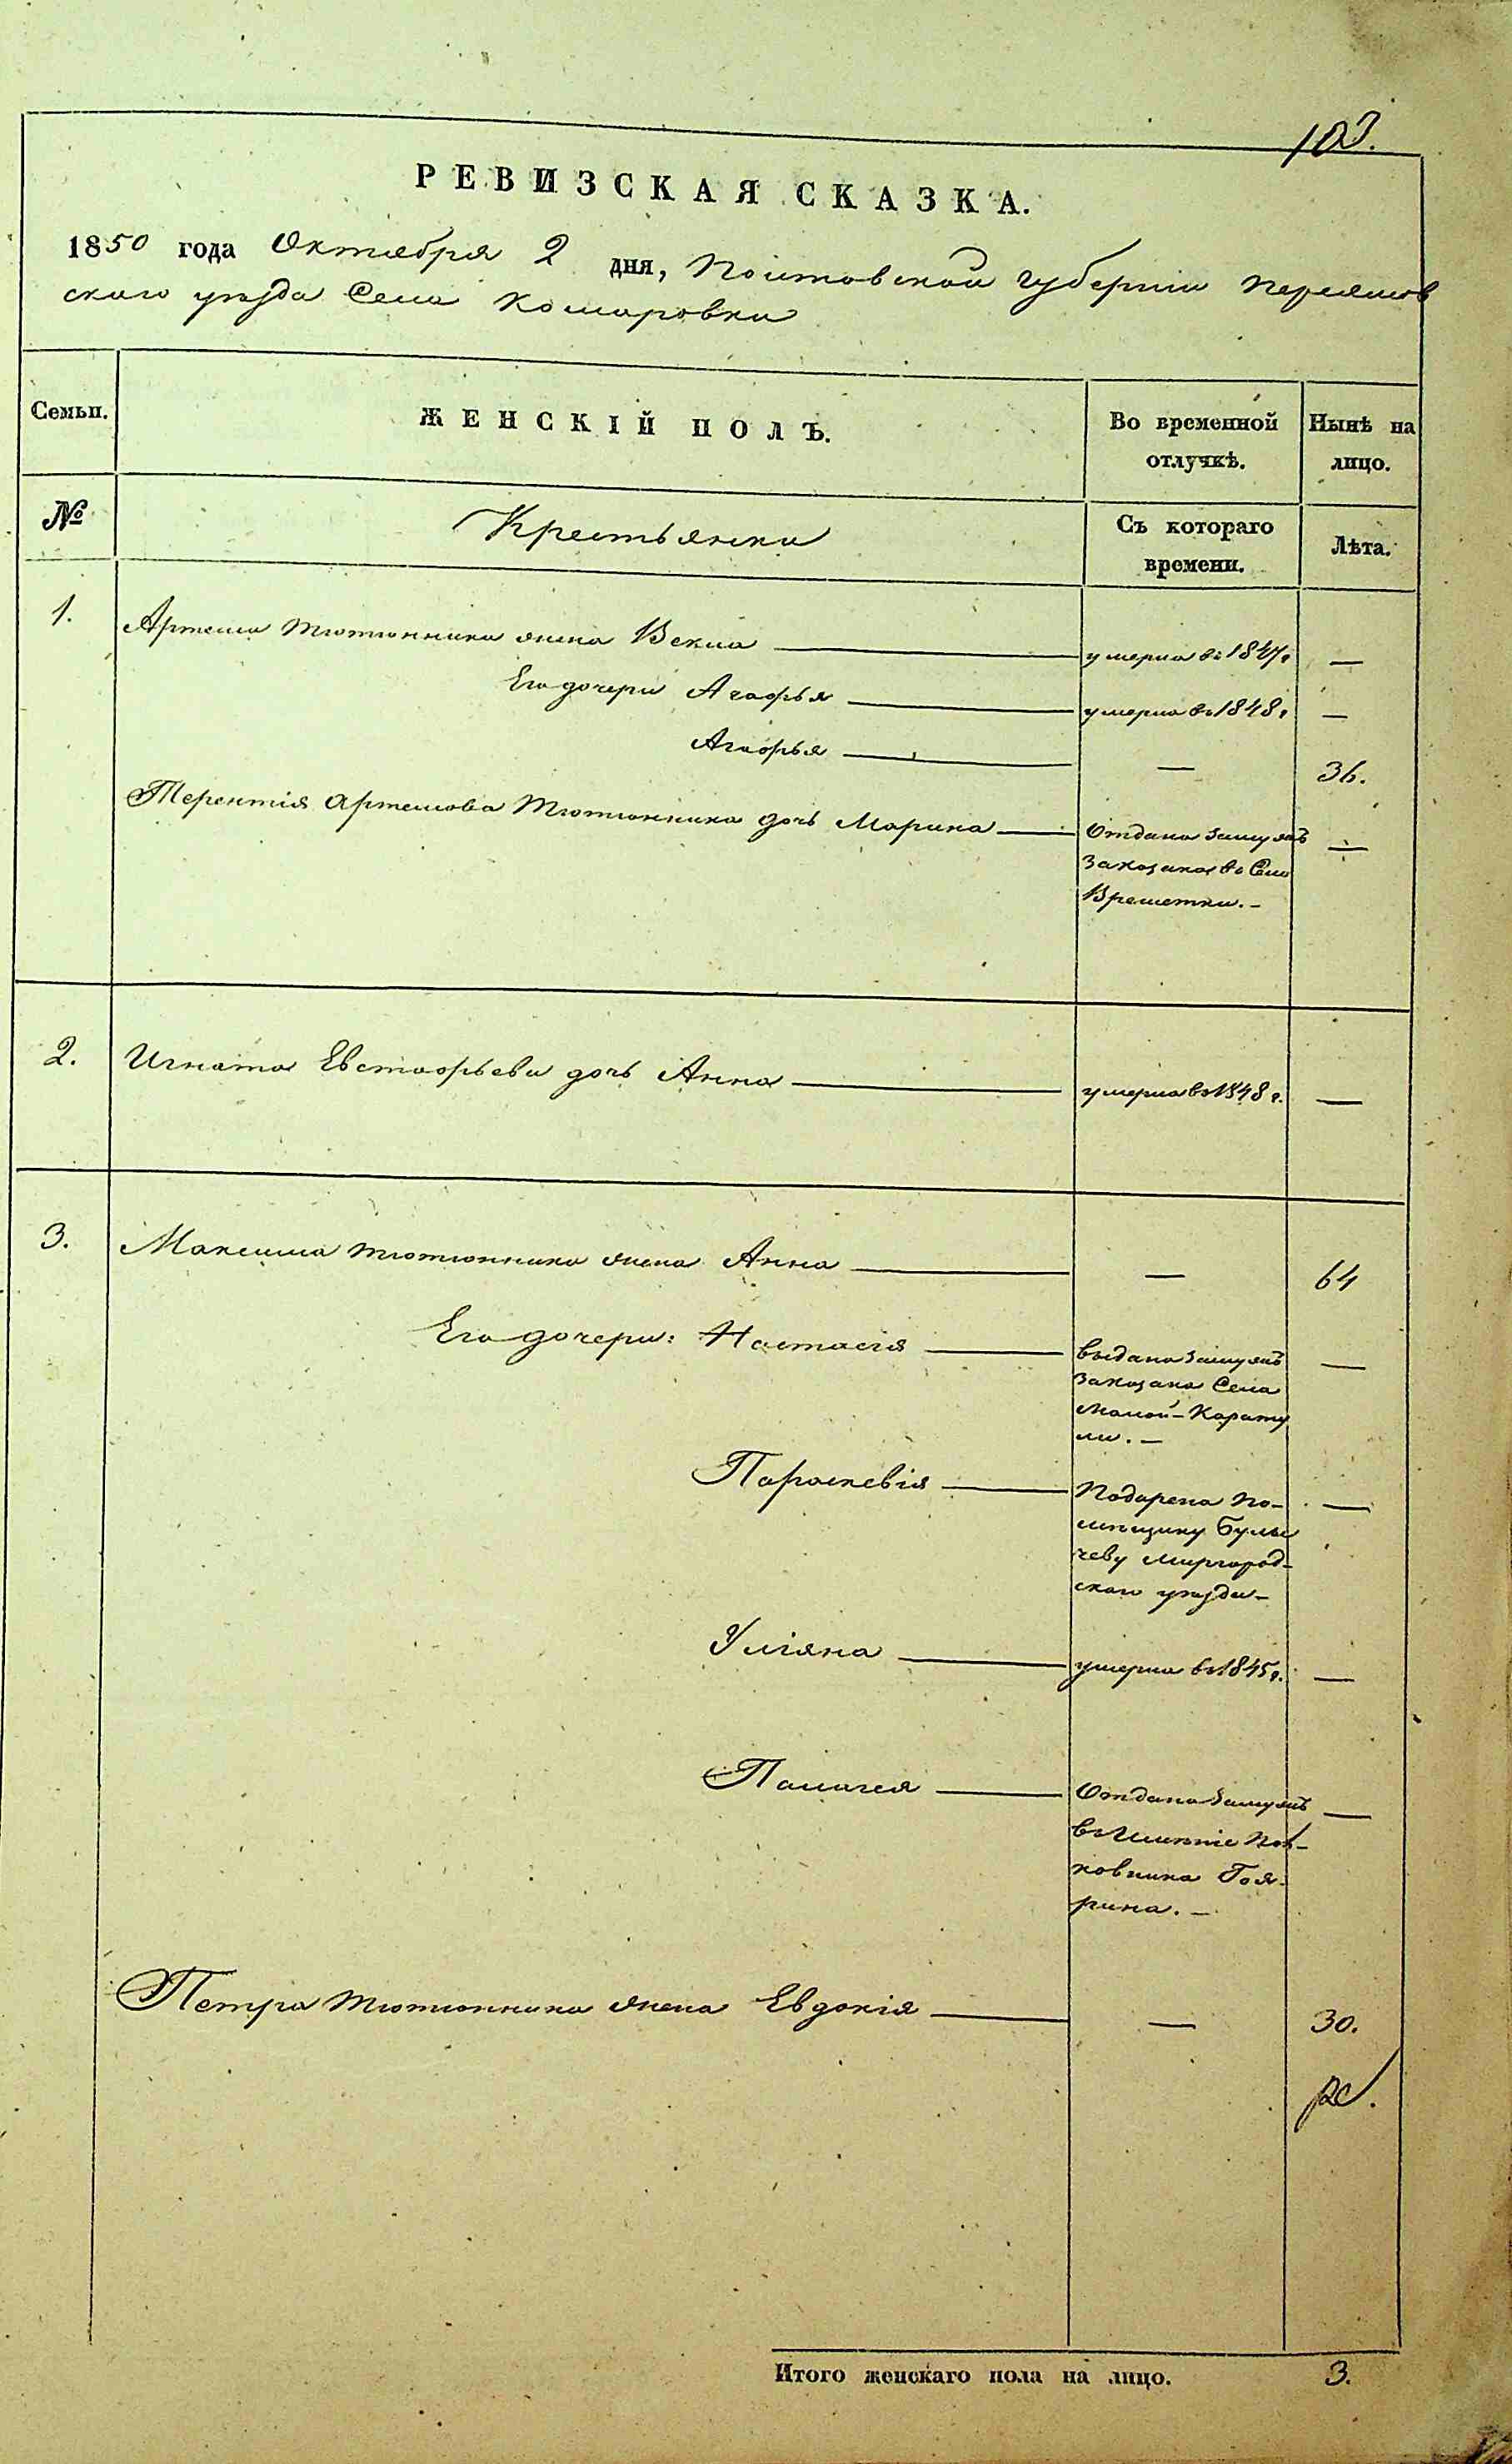 103.
РЕВИЗСКАЯ СКАЗКА.
1850 года Октября 2 дня, Полтовской губерніи Переяслов
скаго уѣзда Села Комаровки
Семьи.
ЖЕНСКІЙ ПОЛЪ.
Во временной
отлучкѣ.
Нынѣ на
лицо.
№
Крестьянки
Съ котораго
времени.
Лѣта.
1. Артема Тютюнника жена Векла — умерла въ 1847г —
Его дочери Агафья — умерла въ 1848г —
Агафья — — 36.
Терентія Артемова Тютюнника дочь Марина — отдана замужъ —
за козака въ Село
Врешетки. —
2. Игната Евстафьева дочь Анна — умерла въ 1848 г. —
3. Максима Тютюнника жена Анна — — 64
Его дочери: Настасія — выдана замужъ —
за козака Села
Малой-Карату
ли. —
Параскевія — Подарена по- —
мѣщику Булы
чеву Миргород-
скаго уѣзда —
Уліяна — умерла въ 1845г. —
Палагея — Отдана замужъ —
въ Имѣніе Пол-
ковника
рина. —
Петра Тютюнника жена Евдокія — — 30.
Итого женскаго пола на лицо. 3.